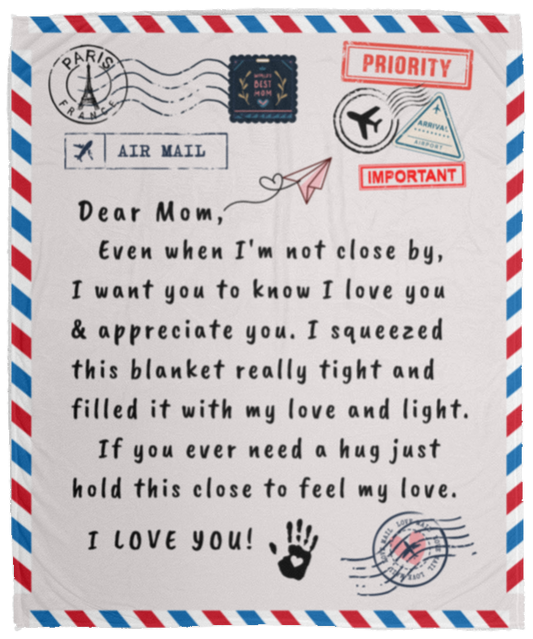 PARIS
FRANCE
WORLDS
BEST
MOM
PRIORITY
ARRIVAL
AIRPORT
AIR MAIL
IMPORTANT
Dear Mom,
Even when I'm not close by,
I want you to know I love you
& appreciate you. I squeezed
this blanket really tight and
filled it with my love and light.
If you ever need a hug just
hold this close to feel my love.
I LOVE YOU!
LOVE MAIL LOVE MAIL LOVE MAIL LOVE MAIL